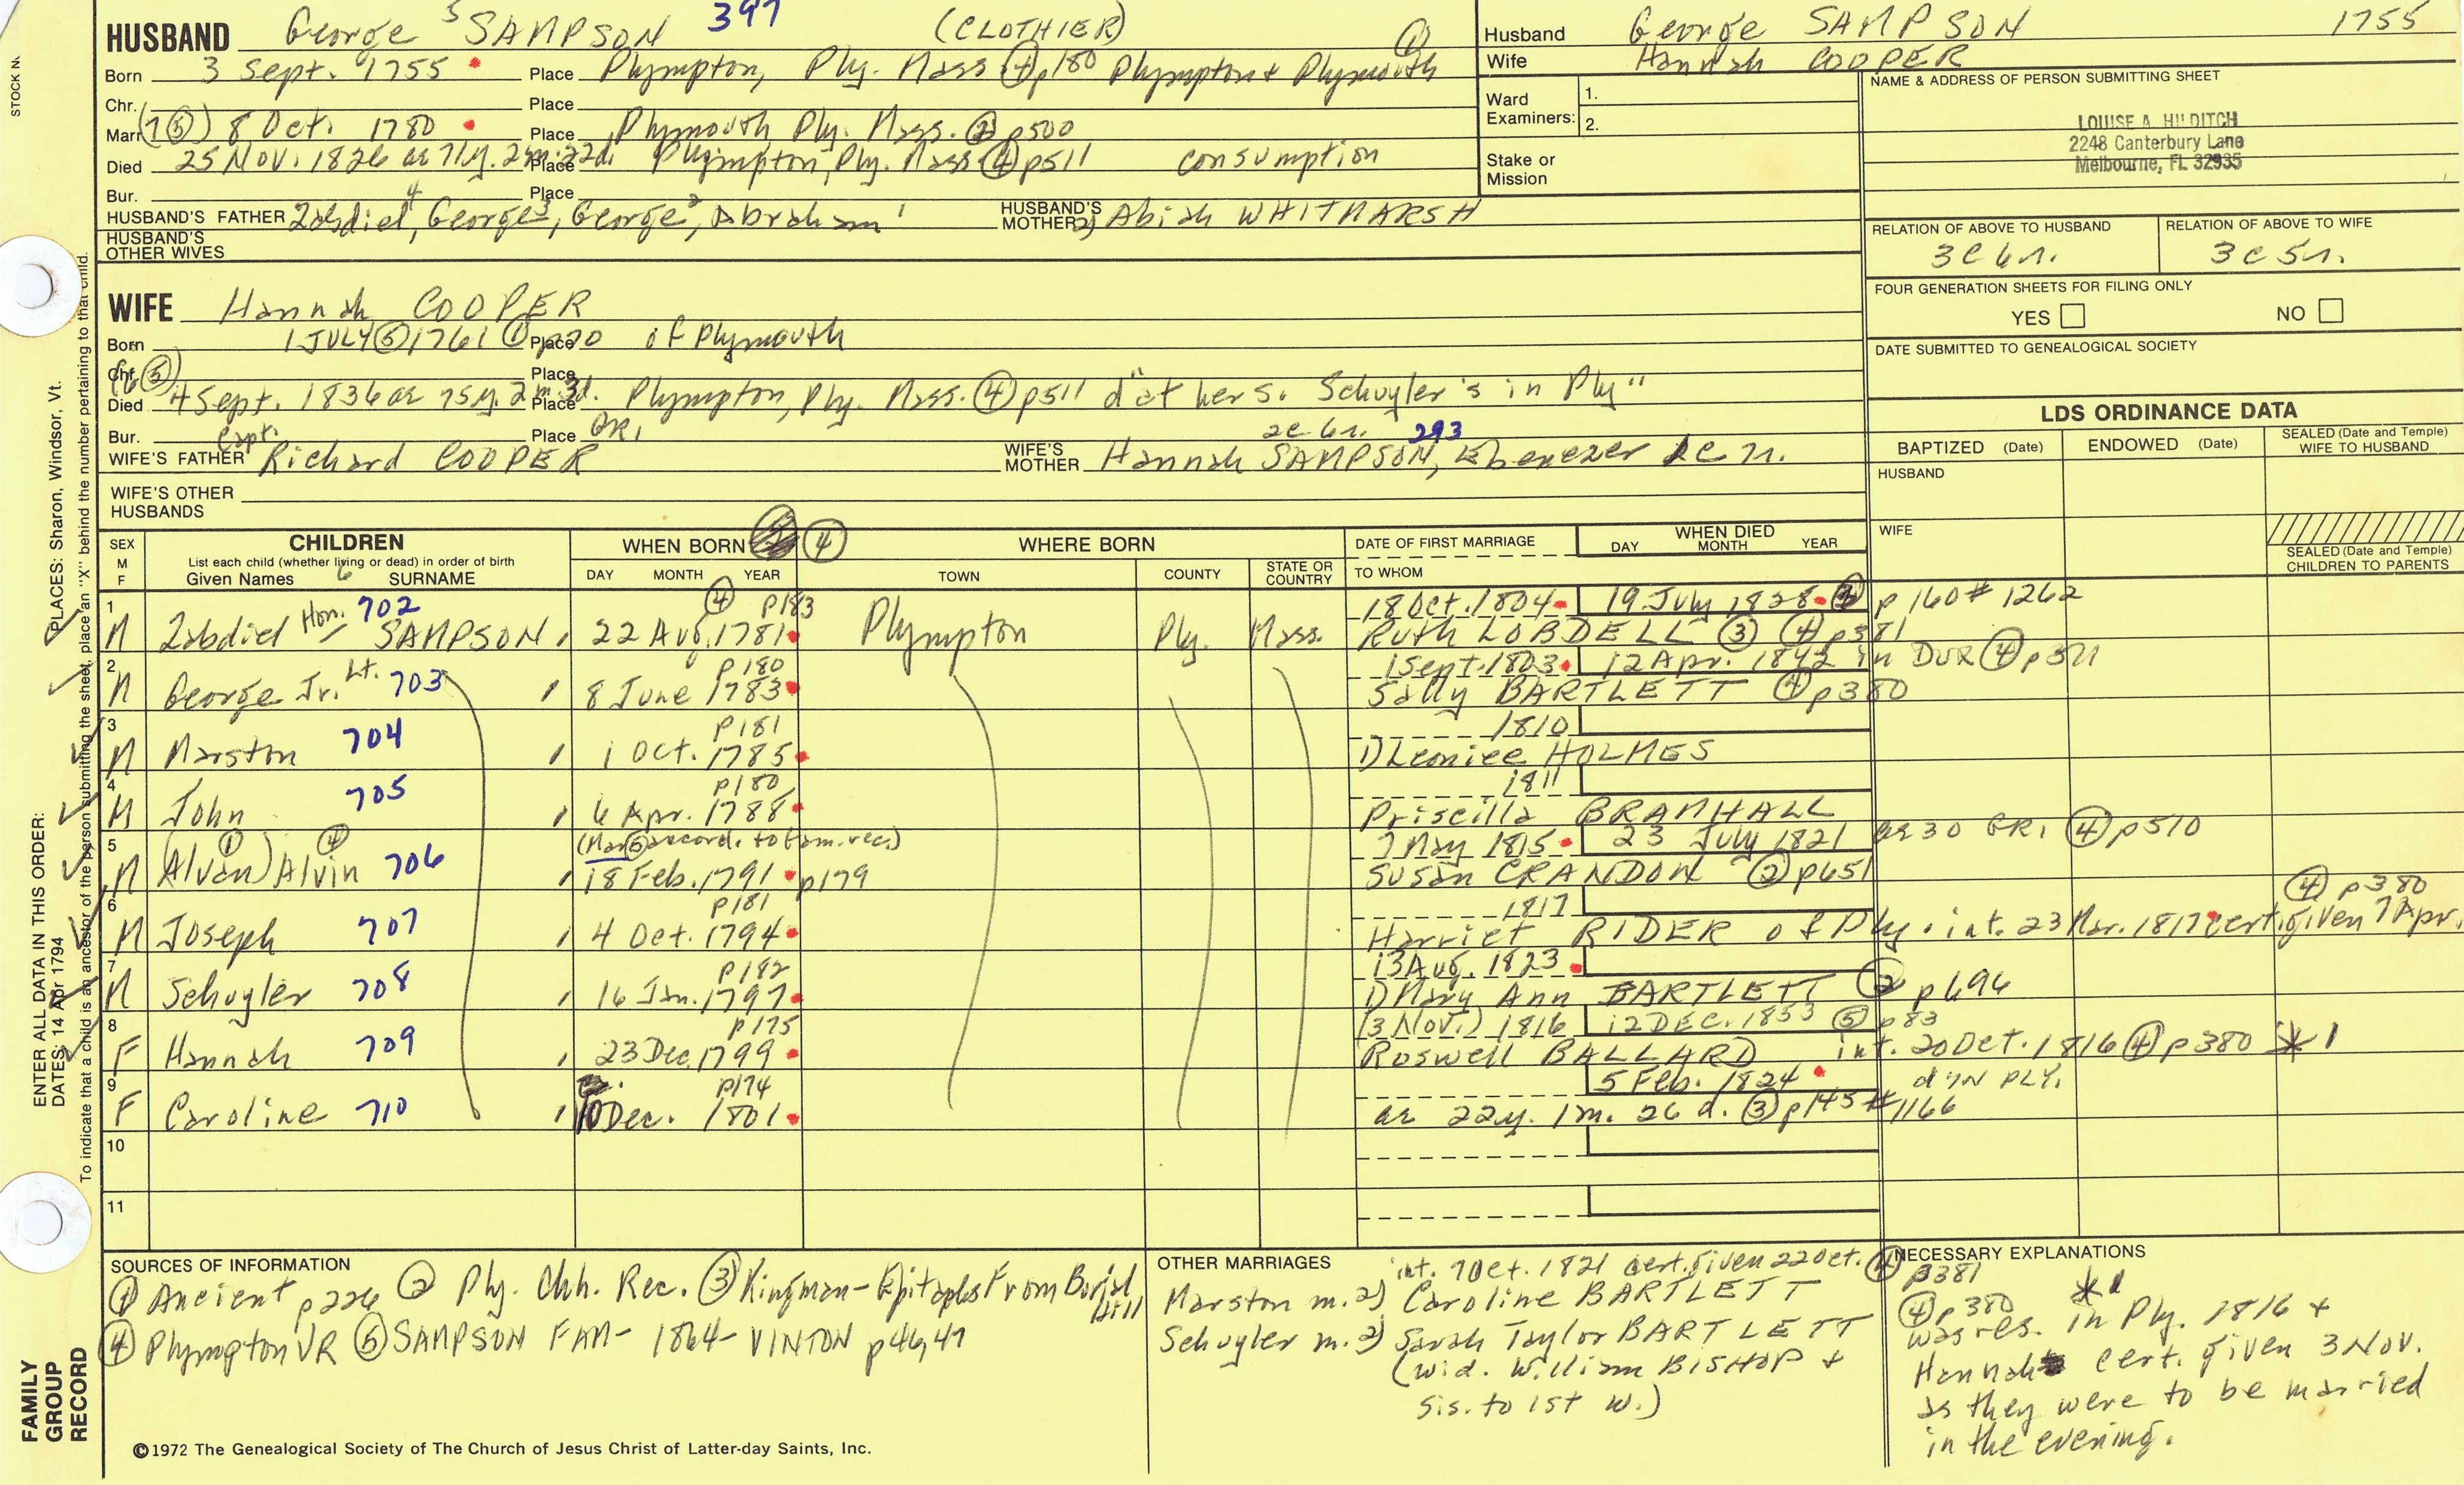 HUSBAND George 5 SAMPSON 397 (CLOTHIER)
Born 3 Sept. 1755 Place Plympton, Ply. Mass ④ p180 Plympton + Plymouth ①
Chr. Place
Marr (1 ⑤) 8 Oct. 1780 Place Plymouth Ply. Mass. ② p500
Died 25 Nov. 1826 ae 71y. 2m. 22d. Place Plympton, Ply. Mass ④ p511 consumption
Bur. Place
HUSBAND'S FATHER Zabdiel 4, George 3, George 2, Abraham 1 HUSBAND'S MOTHER 2) Abiah WHITMARSH
HUSBAND'S OTHER WIVES
Husband George SAMPSON 1755
Wife Hannah COOPER
Ward Examiners: 1.
2.
Stake or Mission
NAME & ADDRESS OF PERSON SUBMITTING SHEET
LOUISE A. HILDITCH
2248 Canterbury Lane
Melbourne, FL 32935
RELATION OF ABOVE TO HUSBAND RELATION OF ABOVE TO WIFE
3c6r. 3c5r.
FOUR GENERATION SHEETS FOR FILING ONLY
YES NO
DATE SUBMITTED TO GENEALOGICAL SOCIETY
WIFE Hannah COOPER
Born 1 JULY ⑤ 1761 ① Place of Plymouth
Chr. Place
Died 4 Sept. 1836 ae 75y. 2m. 3d. Place Plympton, Ply. Mass. ④ p511 d "at her s. Schuyler's in Ply"
(6 ⑤)
Bur. Place GR1
WIFE'S FATHER Capt. Richard COOPER WIFE'S MOTHER Hannah SAMPSON, Ebenezer
2c6r. 293
WIFE'S OTHER HUSBANDS
LDS ORDINANCE DATA
BAPTIZED (Date) ENDOWED (Date) SEALED (Date and Temple) WIFE TO HUSBAND
HUSBAND
WIFE
SEALED (Date and Temple) CHILDREN TO PARENTS
SEX M F CHILDREN WHEN BORN ④ WHERE BORN DATE OF FIRST MARRIAGE WHEN DIED DAY MONTH YEAR
List each child (whether living or dead) in order of birth
Given Names 6 SURNAME DAY MONTH YEAR TOWN COUNTY STATE OR COUNTRY TO WHOM
1 ④ p183 18 Oct. 1804 19 July 1828 ③ p160 # 1262
M Zabdiel Hon. 702 SAMPSON 22 Aug. 1781 Plympton Ply. Mass. Ruth LOBDELL ③ ④ p381
2 p180 1 Sept. 1803 12 Apr. 1842 in DUX ④ p511
M George Jr. Lt. 703 8 June 1783 Sally BARTLETT ④ p380
3 p181 1810
M Marston 704 1 Oct. 1785 1) Leonice HOLMES
4 p180 1811
M John 705 6 Apr. 1788 Priscilla BRAMHALL
5 (Mar ⑤ accord. to fam. rec.) 7 May 1815 23 July 1821 ae 30 GR1 ④ p510
M (Alvan) ① Alvin ④ 706 18 Feb. 1791 p179 Susan CRANDON ② p651
6 p181 1817 ④ p380
M Joseph 707 4 Oct. 1794 Harriet RIDER of Ply. int. 23 Mar. 1817 cert. given 7 Apr.
7 p182 13 Aug. 1823
M Schuyler 708 16 Jan. 1797 1) Mary Ann BARTLETT ② p696
8 p175 (3 Nov.) 1816 12 DEC. 1853 ⑤ p83
F Hannah 709 23 Dec. 1799 Roswell BALLARD int. 20 Oct. 1816 ④ p380 *1
9 p174 5 Feb. 1824 d in PLY.
F Caroline 710 10 Dec. 1801 ae 22y. 1m. 26d. ③ p145 #1166
10
11
SOURCES OF INFORMATION
① Ancient p226 ② Ply. Chh. Rec. ③ Kingman - Epitaphs From Burial Hill
④ Plympton VR ⑤ SAMPSON FAM - 1864 - VINTON p46,47
OTHER MARRIAGES
int. 7 Oct. 1821 cert. given 22 Oct. ④ p381
Marston m. 2) Caroline BARTLETT
Schuyler m. 2) Sarah Taylor BARTLETT
(wid. William BISHOP +
sis. to 1st w.)
NECESSARY EXPLANATIONS
*1
④ p380
was res. in Ply. 1816 +
Hannah cert. given 3 Nov.
as they were to be married
in the evening.
©1972 The Genealogical Society of The Church of Jesus Christ of Latter-day Saints, Inc.
FAMILY GROUP RECORD
ENTER ALL DATA IN THIS ORDER:
DATES: 14 Apr 1794
PLACES: Sharon, Windsor, Vt.
To indicate that a child is an ancestor of the person submitting the sheet, place an "X" behind the number pertaining to that child.
STOCK N